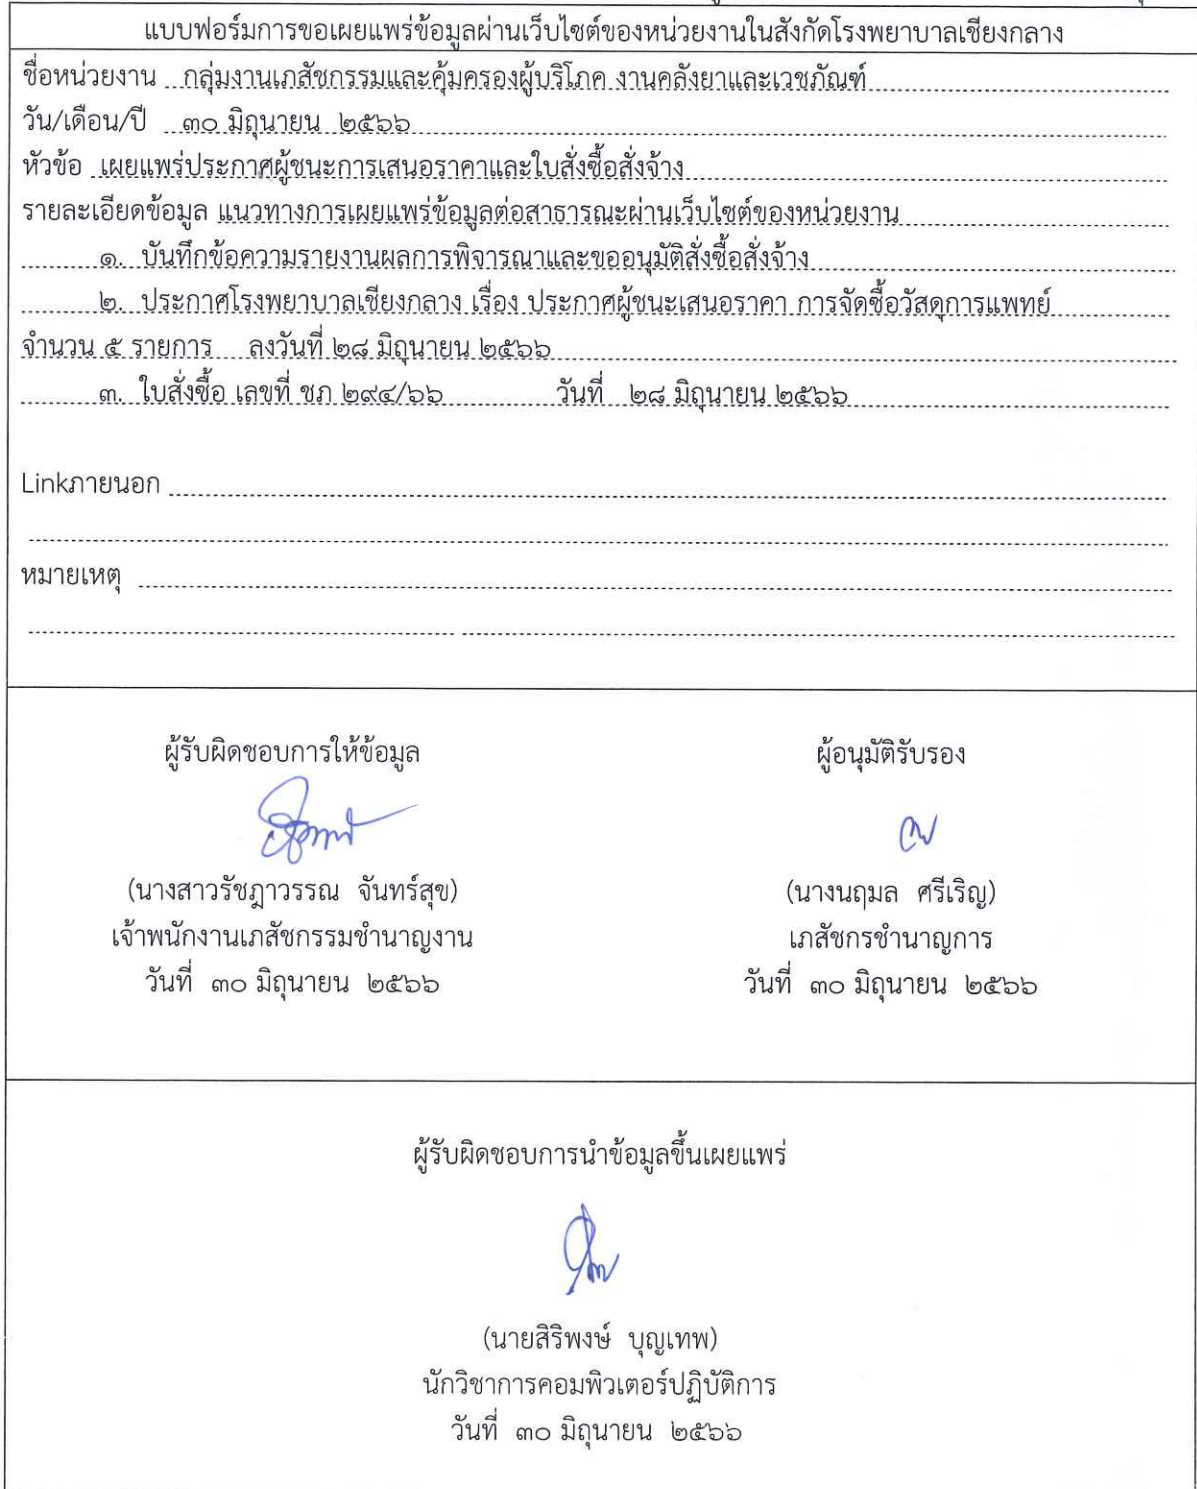 แบบฟอร์มการขอเผยแพร่ข้อมูลผ่านเว็บไซต์ของหน่วยงานในสังกัดโรงพยาบาลเชียงกลาง
ชื่อหน่วยงาน กลุ่มงานเภสัชกรรมและคุ้มครองผู้บริโภค งานคลังยาและเวชภัณฑ์
วัน/เดือน/ปี ๓๐ มิถุนายน ๒๕๖๖
หัวข้อ เผยแพร่ประกาศผู้ชนะการเสนอราคาและใบสั่งซื้อสั่งจ้าง
รายละเอียดข้อมูล แนวทางการเผยแพร่ข้อมูลต่อสาธารณะผ่านเว็บไซต์ของหน่วยงาน
๑. บันทึกข้อความรายงานผลการพิจารณาและขออนุมัติสั่งซื้อสั่งจ้าง
๒. ประกาศโรงพยาบาลเชียงกลาง เรื่อง ประกาศผู้ชนะเสนอราคา การจัดซื้อวัสดุการแพทย์
จำนวน ๕ รายการ ลงวันที่ ๒๘ มิถุนายน ๒๕๖๖
๓. ใบสั่งซื้อ เลขที่ ชภ ๒๙๔/๖๖ วันที่ ๒๘ มิถุนายน ๒๕๖๖
Linkภายนอก
หมายเหตุ
ผู้รับผิดชอบการให้ข้อมูล ผู้อนุมัติรับรอง
(นางสาวรัชฎาวรรณ จันทร์สุข) (นางนฤมล ศรีเริญ)
เจ้าพนักงานเภสัชกรรมชำนาญงาน เภสัชกรชำนาญการ
วันที่ ๓๐ มิถุนายน ๒๕๖๖ วันที่ ๓๐ มิถุนายน ๒๕๖๖
ผู้รับผิดชอบการนำข้อมูลขึ้นเผยแพร่
(นายสิริพงษ์ บุญเทพ)
นักวิชาการคอมพิวเตอร์ปฏิบัติการ
วันที่ ๓๐ มิถุนายน ๒๕๖๖